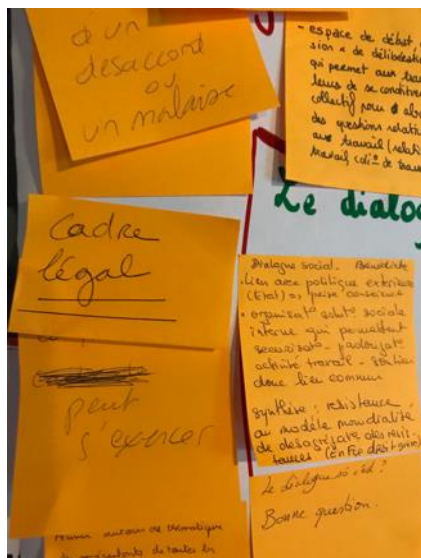 à un
désaccord
ou
un malaise
- espace de débat
sion & de délibération
qui permet aux trava
leurs de se constituer
collectif pour
des questions relativ
aux travail (relatio
travail, cdi° de trava
Le dialog
Cadre
légal
peut
s'exercer
Dialogue social.
. Lien avec politique extérieure
(Etat) prise conscience
. organisat° sociale
interne qui permettent
activité travail - soutien
donc lien commun
Synthèse : résistence
au modèle mondialité
de desagrégat° des résis-
tances (
Le dialogue social ?
Bonne question.
autour de thématique
représentants de toutes les